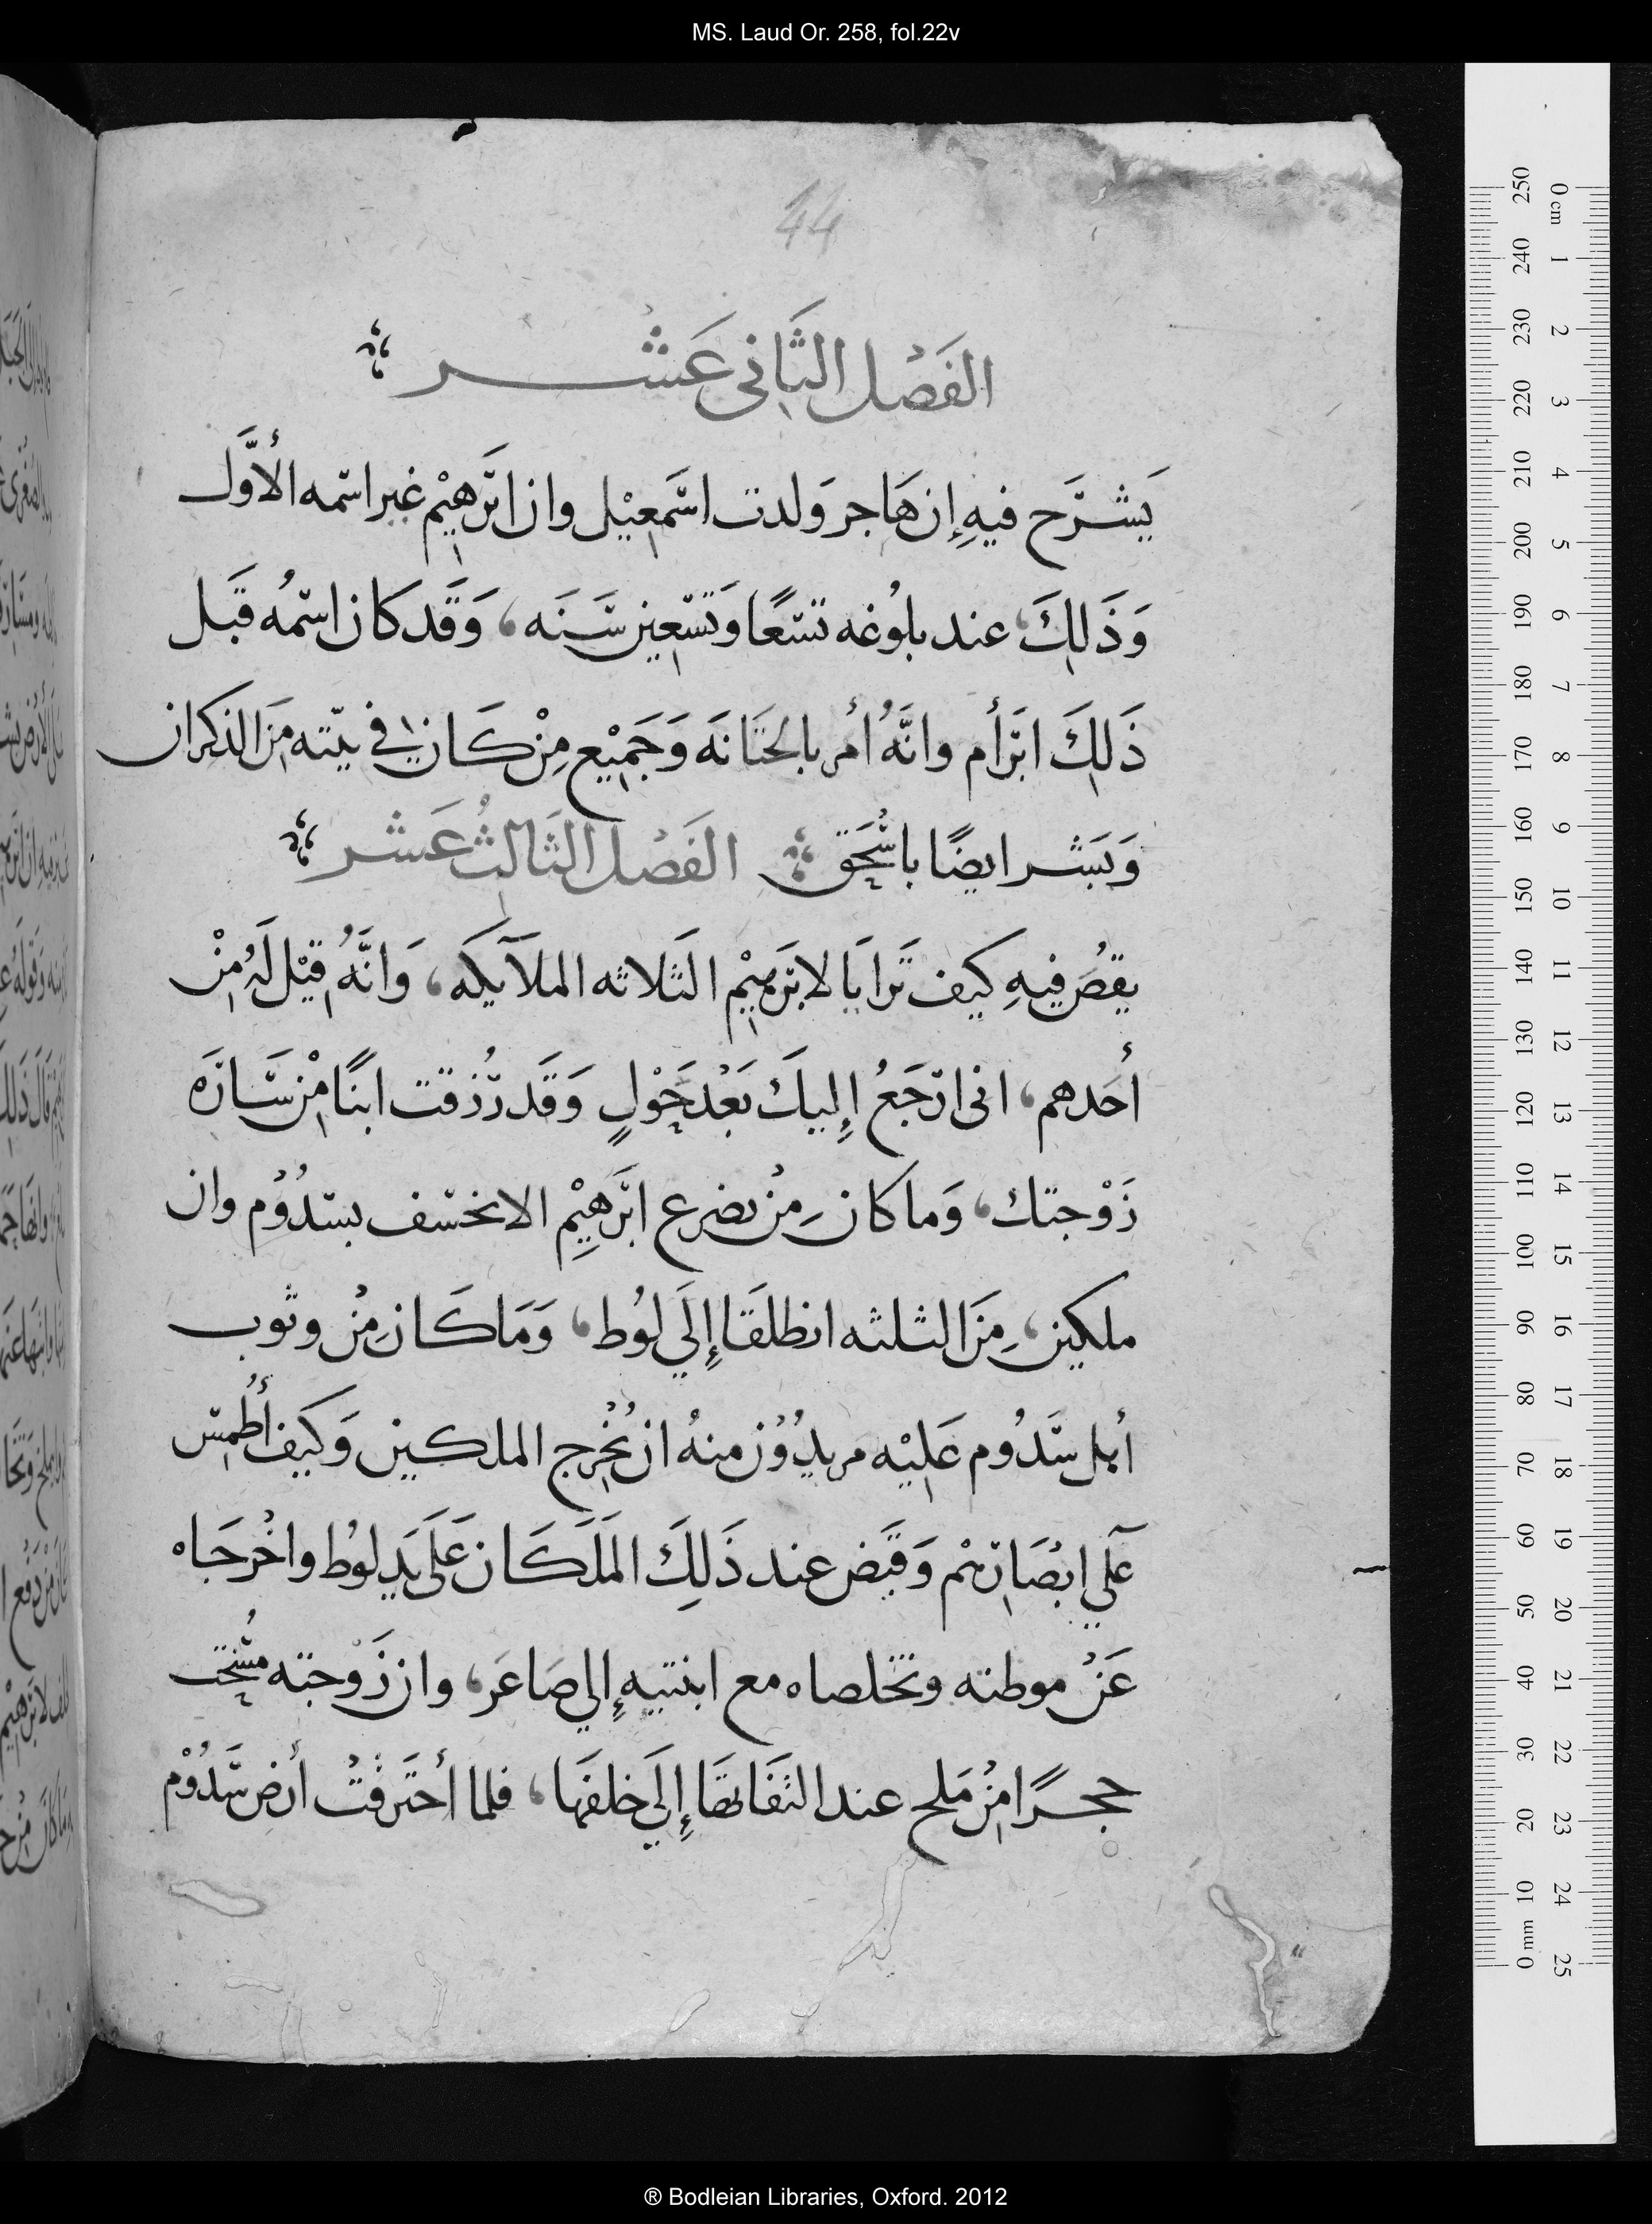 MS. Laud Or. 258, fol.22v
44
الفَصْل الثَانى عَشْر
يَشرَح فيهِ إن هَاجر وَلدت اسمَعِيْل وان ابرَهِيْم غير اسمه الأوَّل
وَذَلِكَ، عند بلوُغه تسعًا وَتسْعِين سَنَه، وَقَد كان اسمُه قَبل
ذَلِكَ ابرَأم وانَّهُ أُمر بالختَانَه وَجَمِيْع مِنْ كَان في بيته مَن الذكران
وَبَشر ايضًا باسُحَق الفَصْل الثَالثُ عَشر
يقصُ فيهِ كيف تَرايَا لابرَهِيْم الثلاثه الملآيكه، وَانَّهُ قِيْل لَهُ مِنْ
أحَدهم، انى ارجَعُ إليكَ بَعْد حَوْلٍ وَقَد رُزقت ابنًا مِنْ سَارَه
زَوْجتك، وَما كان مِنْ تضرع ابرَهِيْم الا تخسف بسدُوُم وان
ملكين، مِنَ الثلثه انطلقَا إلَي لوُط، وَمَا كَان مِنْ وثوب
أهل سَدُوم عَليْه مريدُوْن منهُ ان يُخْرج الملكين وَكيَف أطُمسَ
عَلي ابصَارهم وَقبَض عند ذَلِكَ المَلَكَان عَلَى يَدِ لوُط واخْرجَاه
عَنْ موطنه وتخلصاه مع ابنتيه إلي صَاعَر، وان زَوْجته مسُخَت
حجرًا مِنْ مَلح عند التفَاتهَا إلَي خلفَها، فلما أحتَرقتُ أرض سَدُوُم
® Bodleian Libraries, Oxford. 2012